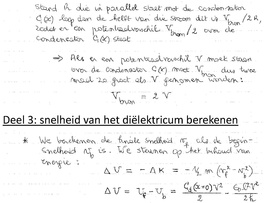 stand R die in parallel staat met de condensator
C(x) loop dan de helft van die stroom dit is V_bron/2R,
zodat er een potentiaalverschil V_bron/2 over de
condensator C(x) staat
→ Als er een potentiaalverschil V moet staan
over de condensator C(x) moet V_bron dus twee
maal zo groot als V genomen worden:
V_bron = 2 V
Deel 3: snelheid van het diëlektricum berekenen
* We berekenen de finale snelheid v_f als de begin-
snelheid v_b is. We steunen op het behoud van
energie:
ΔU = - ΔK = - ½ m (v_f² - v_b²)
ΔU = U_f - U_b =